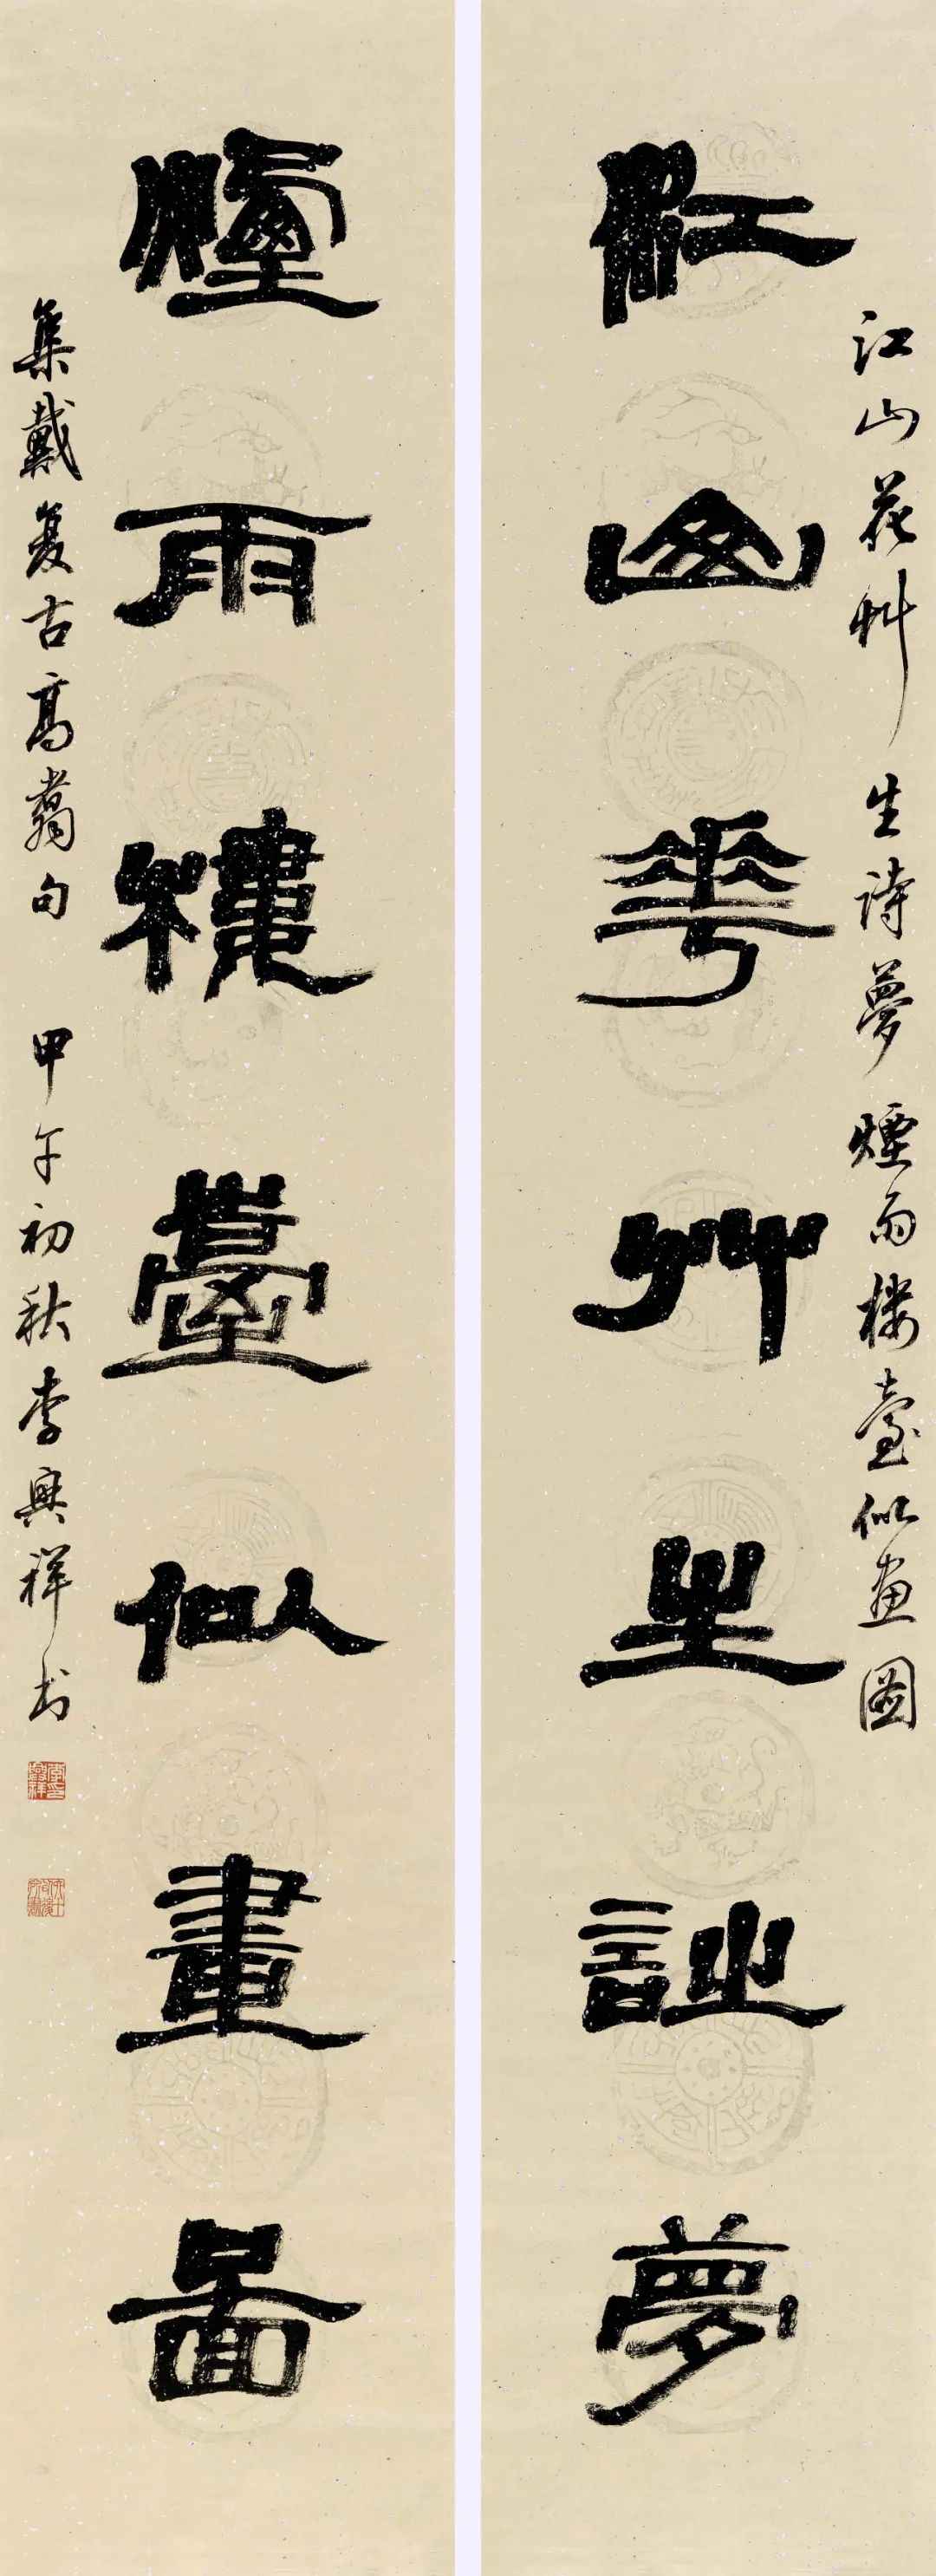 江山花艸 生詩夢 煙雨楼臺似画圖
江山華艸生詩夢
煙雨樓臺似畫圖
集戴复古高翥句 甲午初秋李興祥书